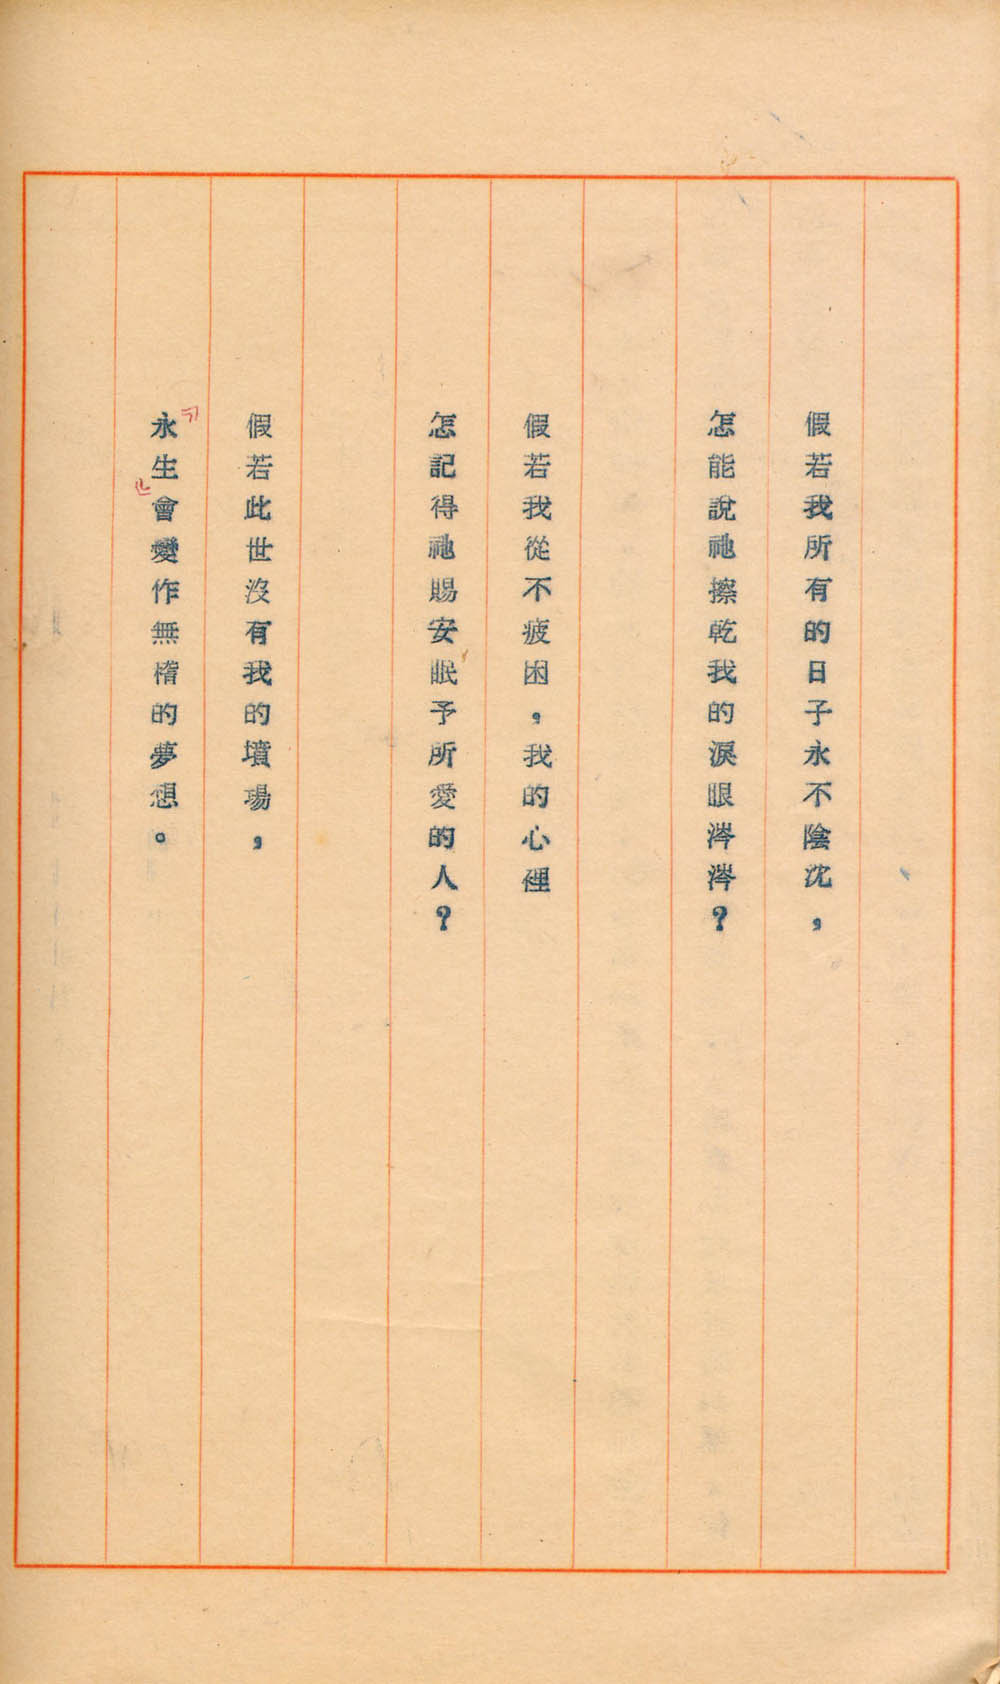 假若我所有的日子永不陰沈，
怎能說祂擦乾我的淚眼涔涔？
假若我從不疲困，我的心裡
怎記得祂賜安眠予所愛的人？
假若此世沒有我的墳場，
永生會變作無稽的夢想。